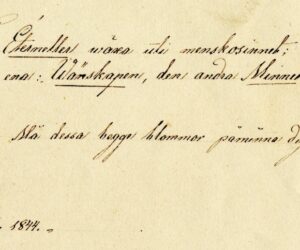 Eterneller wäxa uti menskosinnet;
ena: Wänskapen, den andra Minnet
Må dessa begge blommor påminna dig
1844.